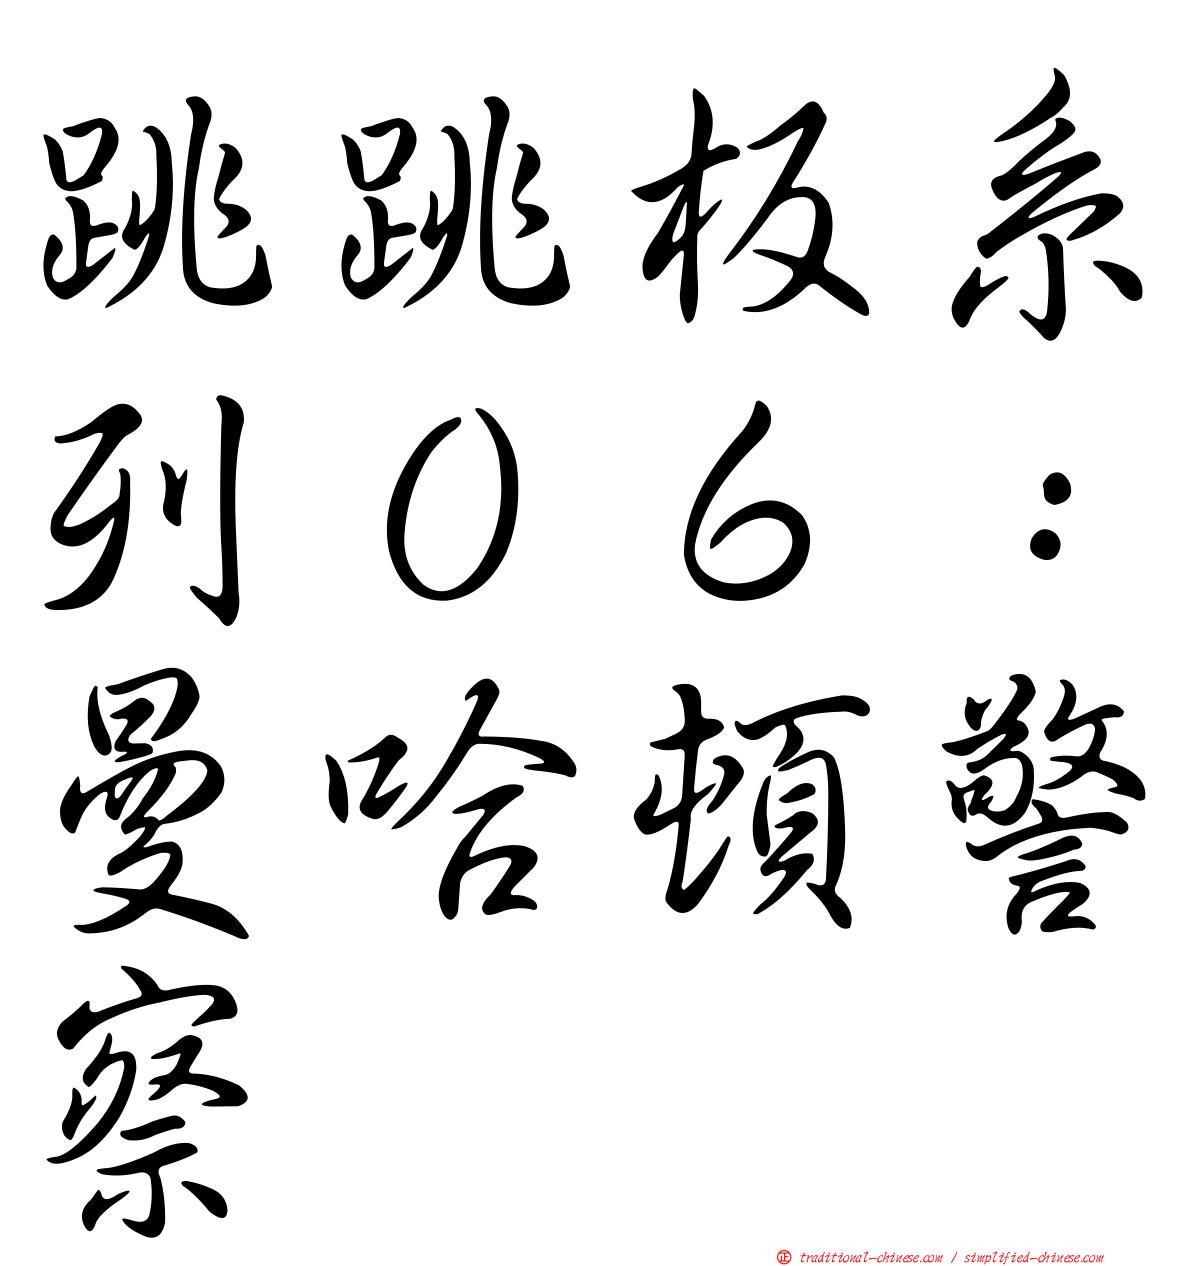 跳跳板系
列06：
曼哈頓警
察
㊣ traditional-chinese.com / simplified-chinese.com